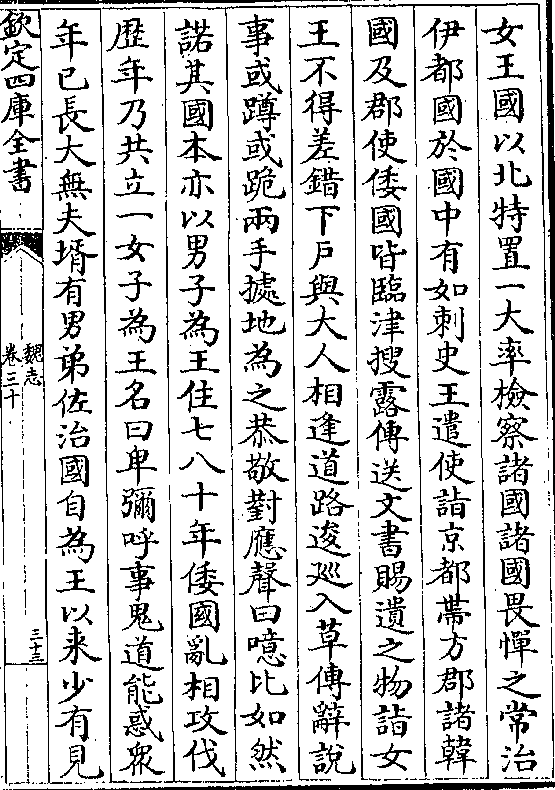 女王國以北特置一大率檢察諸國諸國畏憚之常治
伊都國於國中有如刺史王遣使詣京都帶方郡諸韓
國及郡使倭國皆臨津搜露傳送文書賜遺之物詣女
王不得差錯下戶與大人相逢道路逡廵入草傳辭說
事或蹲或跪兩手㨿地為之恭敬對應聲曰噫比如然
諾其國本亦以男子為王住七八十年倭國亂相攻伐
歴年乃共立一女子為王名曰卑彌呼事鬼道能惑衆
年已長大無夫壻有男弟佐治國自為王以来少有見
欽定四庫全書
魏志
卷三十
三十三